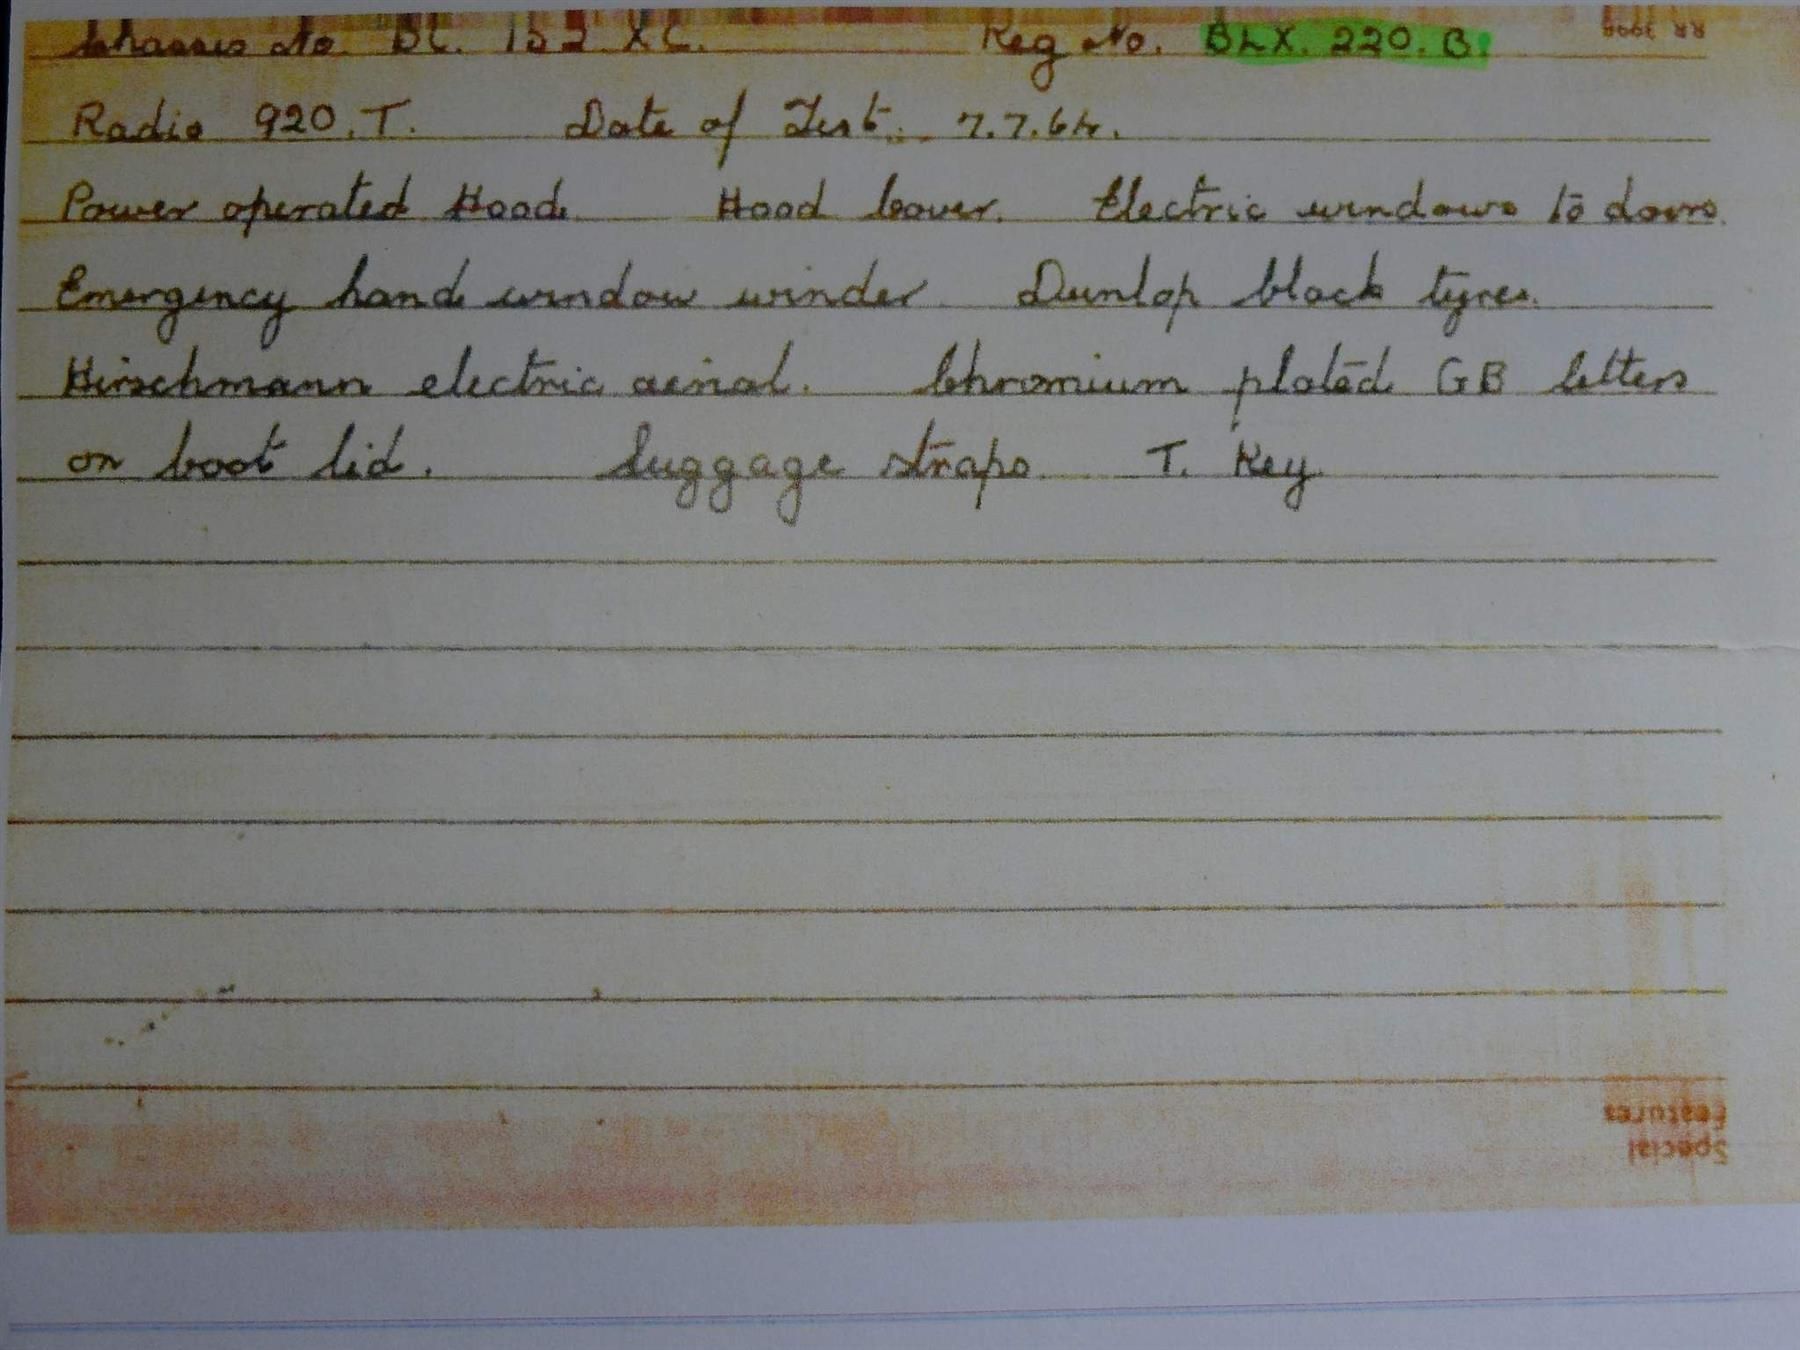 Chassis No. BC. 152 XC. Reg No. BLX. 220. B.
RR 3998
Radio 920. T. Date of Test. 7.7.64.
Power operated Hood. Hood cover. Electric windows to doors.
Emergency hand window winder. Dunlop black tyres.
Hirschmann electric aerial. Chromium plated GB letters
on boot lid. Luggage straps. T. Key
Special
Features